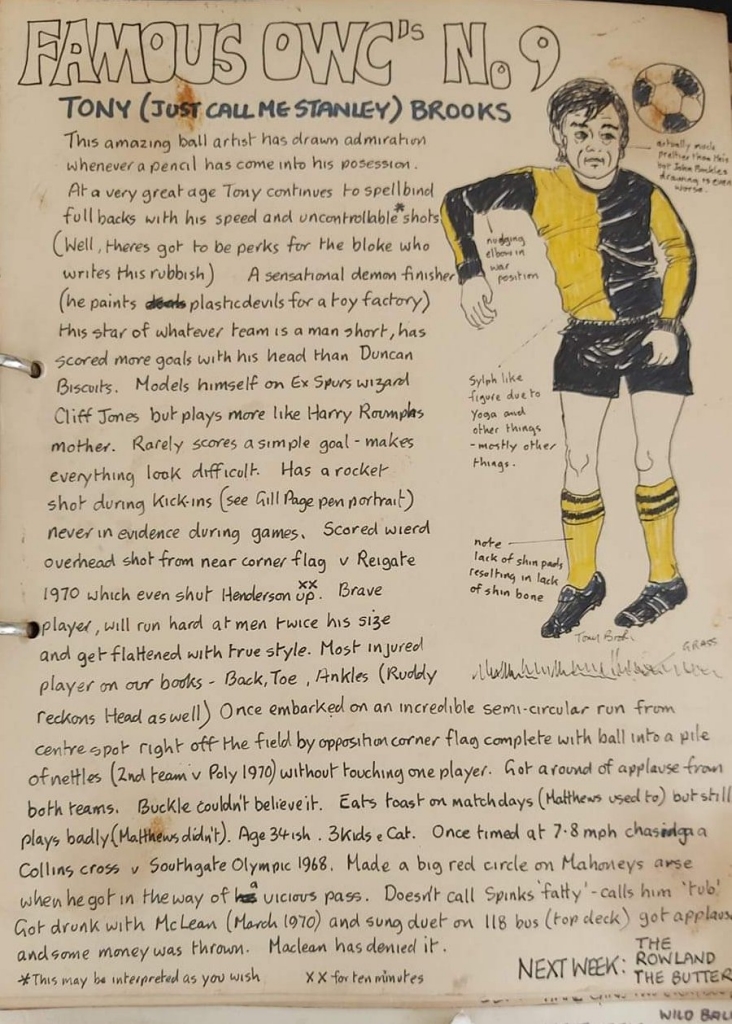 FAMOUS OWC's No 9
TONY (JUST CALL ME STANLEY) BROOKS
This amazing ball artist has drawn admiration
whenever a pencil has come into his posession.
At a very great age Tony continues to spellbind
full backs with his speed and uncontrollable* shots
(Well, theres got to be perks for the bloke who
writes this rubbish) A sensational demon finisher
(he paints plastic devils for a toy factory)
this star of whatever team is a man short, has
scored more goals with his head than Duncan
Biscuits. Models himself on Ex Spurs wizard
Cliff Jones but plays more like Harry Roumphs
mother. Rarely scores a simple goal - makes
everything look difficult. Has a rocket
shot during Kick-ins (see Gill Page pen portrait)
never in evidence during games. Scored wierd
overhead shot from near corner flag v Reigate
1970 which even shut Henderson up.xx Brave
player, will run hard at men twice his size
and get flattened with true style. Most injured
player on our books - Back, Toe, Ankles (Ruddy
reckons Head as well) Once embarked on an incredible semi-circular run from
centre spot right off the field by opposition corner flag complete with ball into a pile
of nettles (2nd team v Poly 1970) without touching one player. Got a round of applause from
both teams. Buckle couldn't believe it. Eats toast on matchdays (Matthews used to) but still
plays badly (Matthews didn't). Age 34ish. 3 Kids & Cat. Once timed at 7.8 mph chasing a
Collins cross v Southgate Olympic 1968. Made a big red circle on Mahoneys arse
when he got in the way of a vicious pass. Doesn't call Spinks 'fatty' - calls him 'tub'
Got drunk with McLean (March 1970) and sung duet on 118 bus (top deck) got applaus
and some money was thrown. Maclean has denied it.
*This may be interpreted as you wish
xx for ten minutes
NEXT WEEK: THE
ROWLAND
THE BUTTER
actually much
prettier than this
but John Buckles
drawing is even
worse.
nudging
elbow in
war
position
Sylph like
figure due to
Yoga and
other things
- mostly other
things.
note
lack of shin pads
resulting in lack
of shin bone
Tony Brook
GRASS
WILD BALL